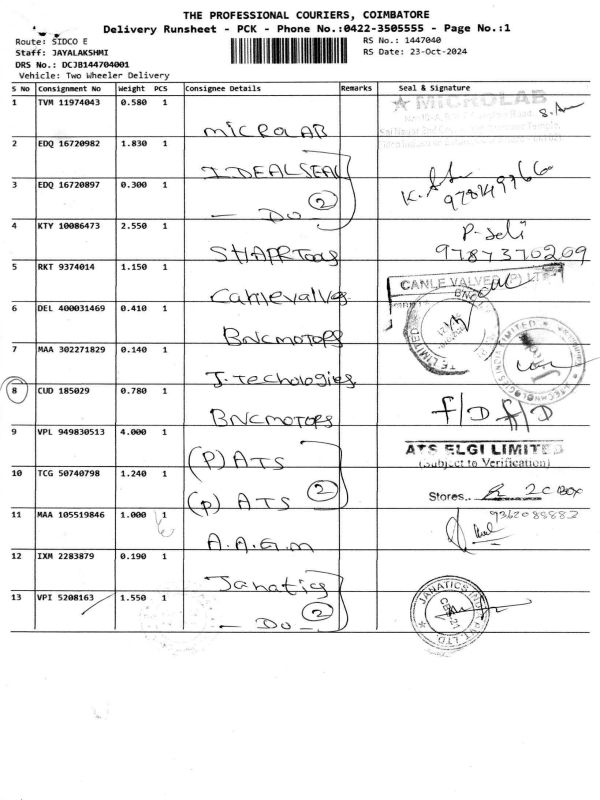 THE PROFESSIONAL COURIERS, COIMBATORE
Delivery Runsheet - PCK - Phone No.:0422-3505555 - Page No.:1
Route: SIDCO E
RS No.: 1447040
Staff: JAYALAKSHMI
RS Date: 23-Oct-2024
DRS No.: DCJB144704001
Vehicle: Two Wheeler Delivery
S No Consignment No Weight PCS Consignee Details Remarks Seal & Signature
1 TVM 11974043 0.580 1 MICROLAB
micro AB
2 EDQ 16720982 1.830 1
IDEALSEAL
3 EDQ 16720897 0.300 1
- Do - 2
4 KTY 10086473 2.550 1 P-Seli
SHARPTools 9787370209
5 RKT 9374014 1.150 1 CANLE VALVES (P) LTD
Canlevalves
6 DEL 400031469 0.410 1
BNCMOTORS
7 MAA 302271829 0.140 1
J.Techologies
8 CUD 185029 0.780 1 f/D f/D
BNCMOTORS
9 VPL 949830513 4.000 1 ATS ELGI LIMITED
(P) ATS (Subject to Verification)
10 TCG 50740798 1.240 1 Stores.. 2C BOX
(P) ATS 2
11 MAA 105519846 1.000 1 9362088882
A.A.G.m
12 IXM 2283879 0.190 1
Janatics
13 VPI 5208163 1.550 1
- Do - 2